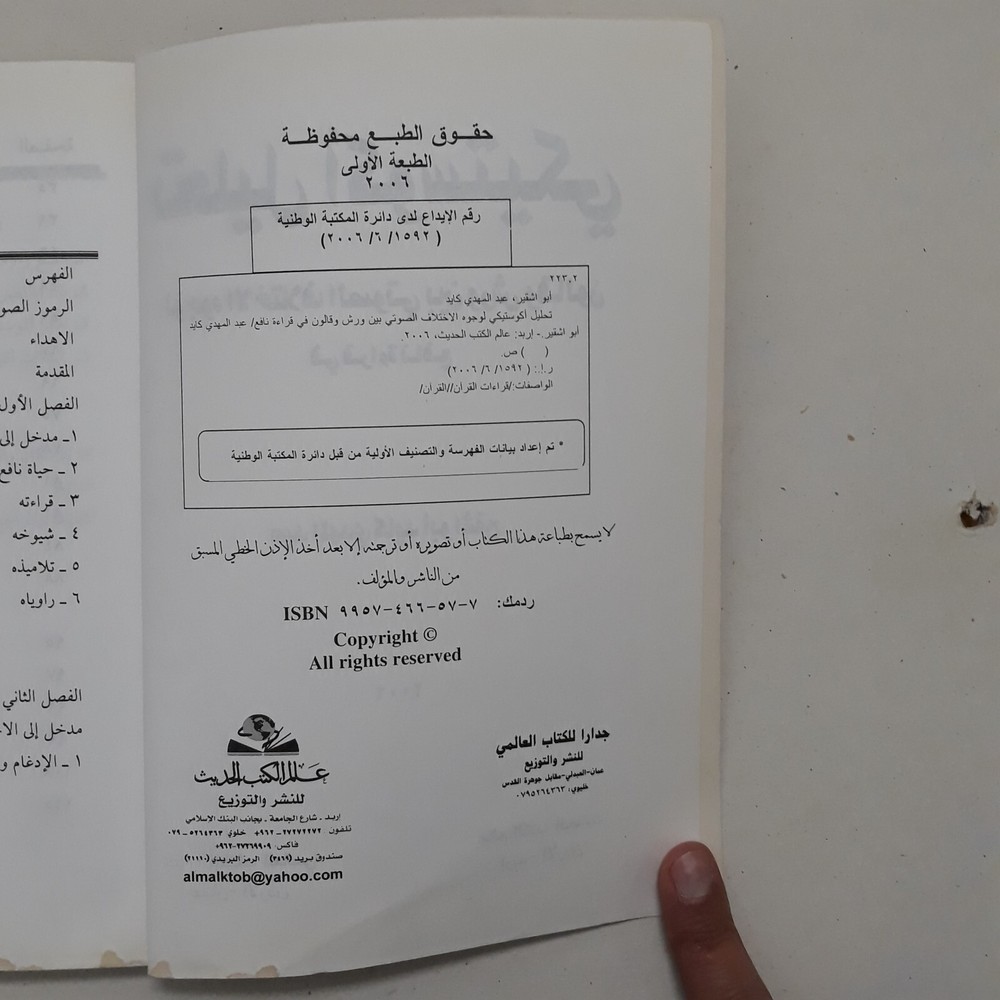 حقوق الطبع محفوظة
الطبعة الأولى
٢٠٠٦
رقم الإيداع لدى دائرة المكتبة الوطنية
(٢٠٠٦ /٦ /١٥٩٢)
٢٢٣,٢
أبو اشقير، عبد المهدي كايد
تحليل أكوستيكي لوجوه الاختلاف الصوتي بين ورش وقالون في قراءة نافع/ عبد المهدي كايد
أبو اشقير.- إربد: عالم الكتب الحديث، ٢٠٠٦.
( ) ص.
ر.إ.: (٢٠٠٦ /٦ /١٥٩٢)
الواصفات:/قراءات القرآن//القرآن/
* تم إعداد بيانات الفهرسة والتصنيف الأولية من قبل دائرة المكتبة الوطنية
لا يسمح بطباعة هذا الكتاب أو تصويره أو ترجمته إلا بعد أخذ الإذن الخطي المسبق
من الناشر والمؤلف.
ردمك: ISBN ٩٩٥٧-٤٦٦-٥٧-٧
Copyright ©
All rights reserved
جدارا للكتاب العالمي
للنشر والتوزيع
عمان-العبدلي-مقابل جوهرة القدس
خليوي: ٠٧٩٥٢٦٤٣٦٣
عالم الكتب الحديث
للنشر والتوزيع
اربد ـ شارع الجامعة ـ بجانب البنك الاسلامي
تلفون ٢٧٢٧٢٢٧٢ -٩٦٢+ خلوي ٥٢٦٤٣٦٣ ـ ٠٧٩
فاكس ٢٧٢٦٩٩٠٩-٩٦٢+
صندوق بريد (٣٤٦٩) الرمز البريدي (٢١١١٠)
almalktob@yahoo.com
الفهرس
الرموز
الاهداء
المقدمة
الفصل الأول
١ـ مدخل
٢ ـ حياة نافع
٣ ـ قراءته
٤ ـ شيوخه
٥ ـ تلاميذه
٦ ـ راوياه
الفصل الثاني
مدخل إلى
١ ـ الإدغام و